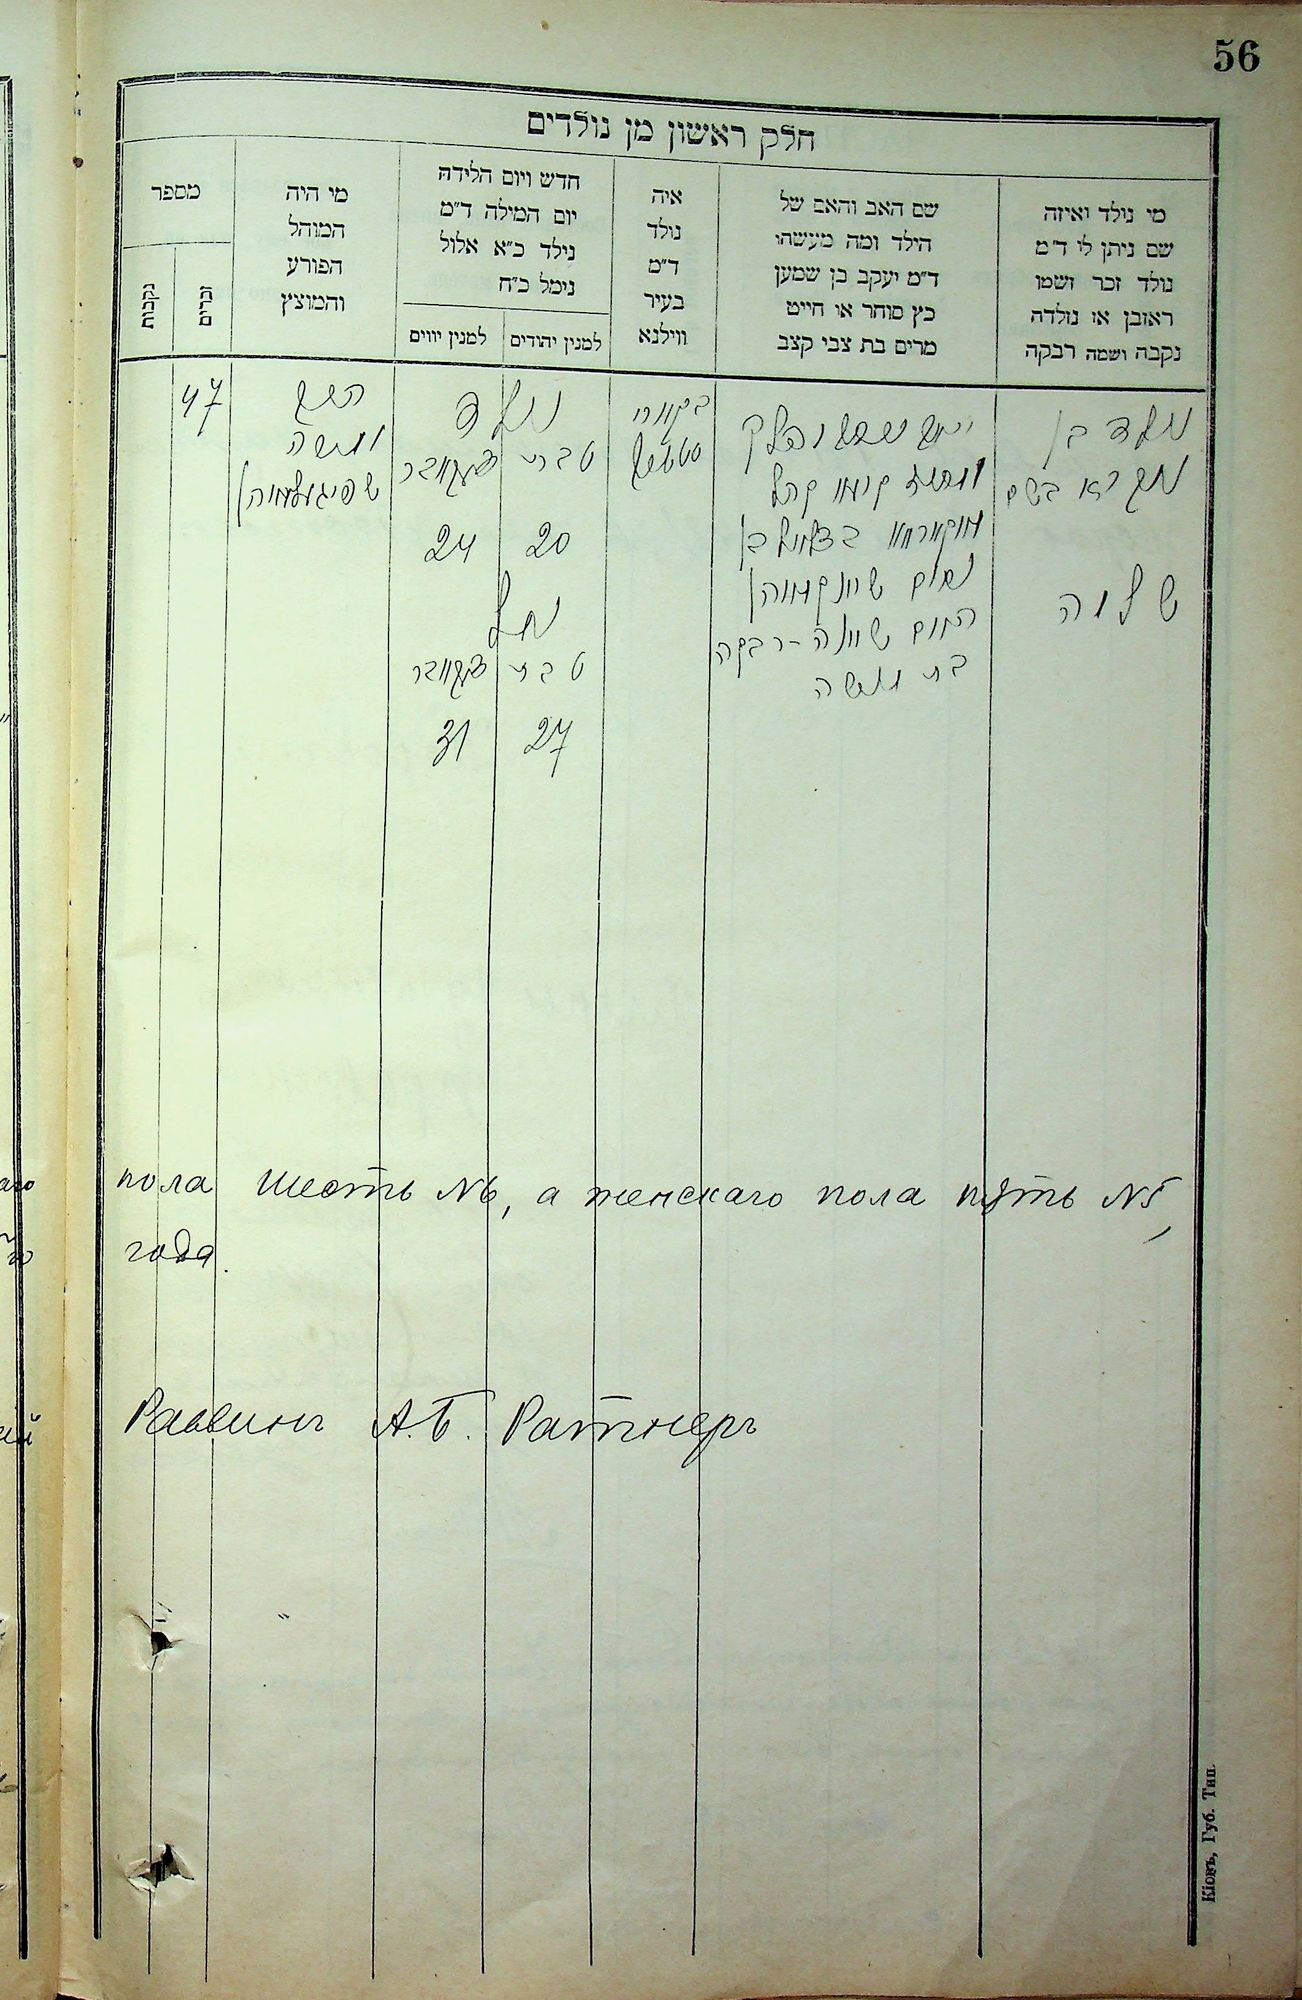 56
חלק ראשון מן נולדים
מי נולד ואיזה
שם ניתן לו ד״מ
נולד זכר ושמו
ראובן או נולדה
נקבה ושמה רבקה
שם האב והאם של
הילד ומה מעשהו
ד״מ יעקב בן שמען
כץ סוחר או חייט
מרים בת צבי קצב
איה
נולד
ד״מ
בעיר
ווילנא
חדש ויום הלידה
יום המילה ד״מ
נילד כ״א אלול
נימל כ״ח
למנין יהודים
למנין יווים
מי היה
המוהל
הפורע
והמוצץ
מספר
זכרים
נקבות
נולד בן
נקרא בשם
שלמה
נחום שיינקמאן
האם שיינה-רבקה
בת משה
נולד
טבת
דעקאבר
20
24
נמול
טבת
דעקאבר
27
31
משה
שפיגעלמאן
47
пола шесть №6, а женскаго пола пять №5,
года.
Раввинъ А.Б. Ратнеръ
Кіовъ, Губ. Тип.